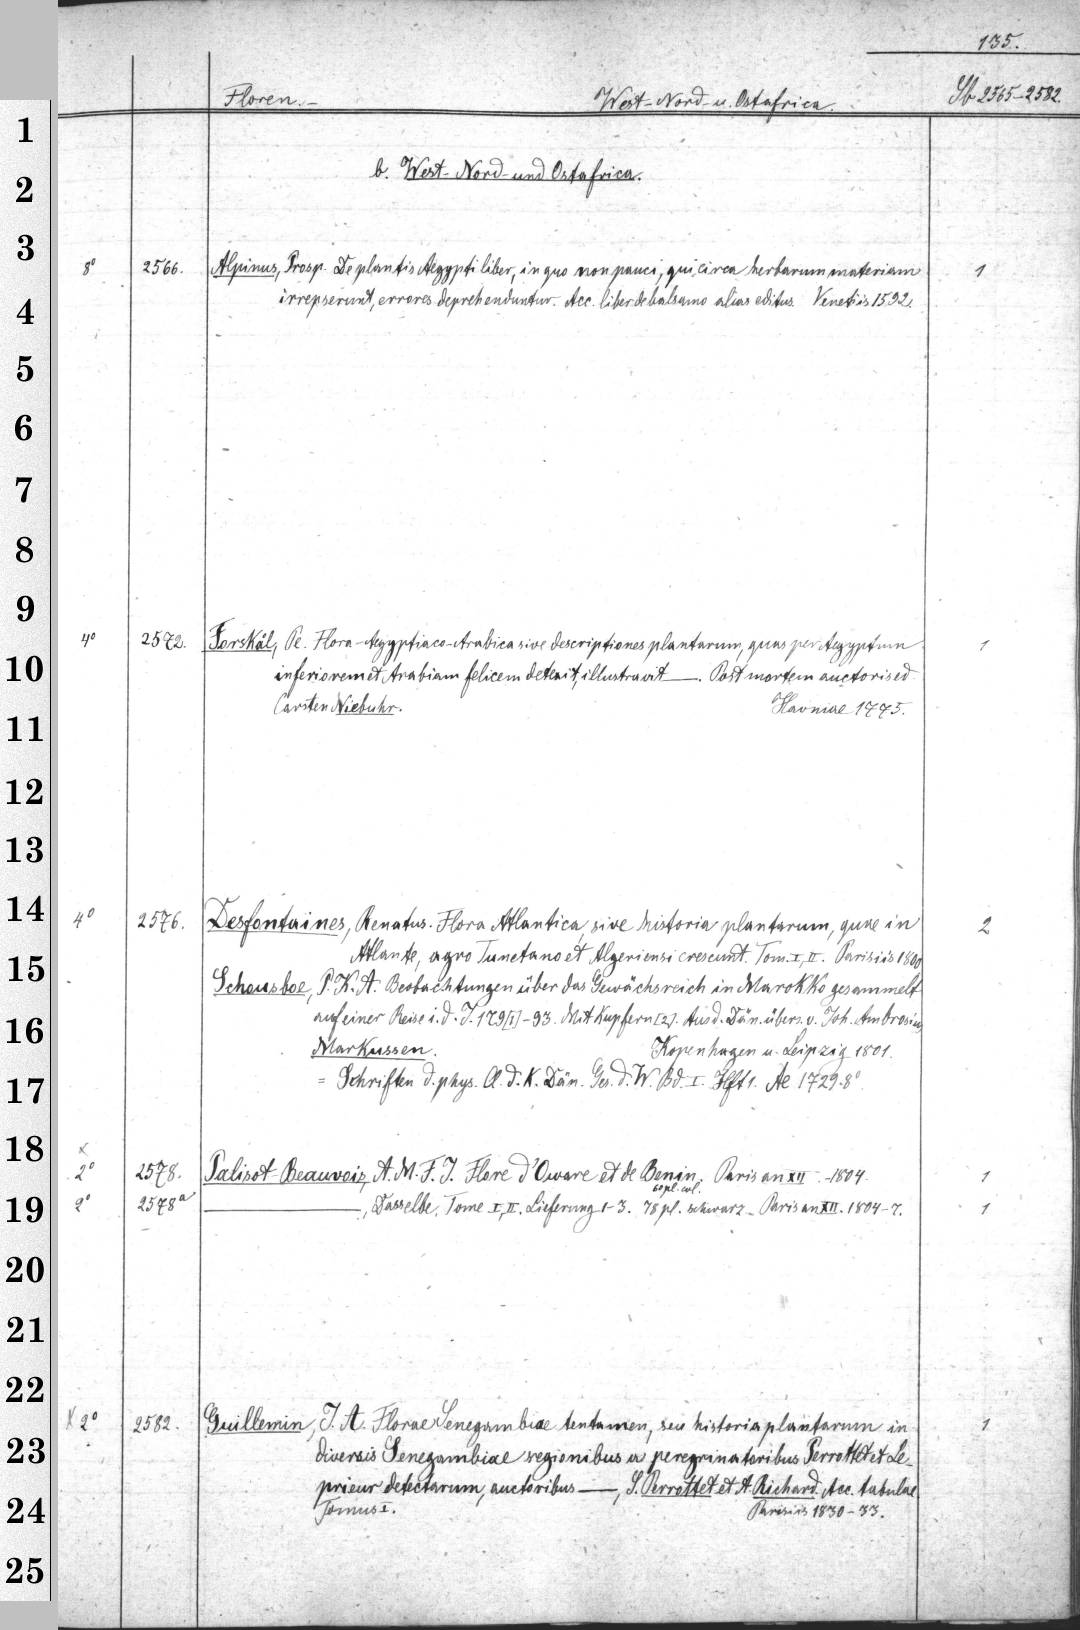 135.
Floren.- West-Nord-u. Ostafrica. Sb 2565-2582
b. West-Nord-und Ostafrica.
8° 2566. Alpinus, Prosp. De plantis Aegypti liber, in quo non pauci, qui circa herbarum materiam 1
irrepserunt, errores deprehenduntur. Acc. liber de balsamo alias editus. Venetiis 1592.
4° 2572. Forskål, Pe. Flora-Aegyptiaco-Arabica sive descriptiones plantarum, quas per Aegyptum 1
inferiorem et Arabiam felicem detexit, illustravit —. Post mortem auctoris ed.
Carsten Niebuhr. Havniae 1775.
4° 2576. Desfontaines, Renatus. Flora Atlantica, sive historia plantarum, quae in 2
Atlante, agro Tunetano et Algeriensi crescunt. Tom. I, II. Parisiis 1800
Schousboe, P. K. A. Beobachtungen über das Gewächsreich in Marokko gesammelt
auf einer Reise i. d. J. 179[1]-93. Mit Kupfern [2]. Aus d. Dän. übers. v. Joh. Ambrosius
Markussen. Kopenhagen u. Leipzig 1801.
= Schriften d. phys. Cl. d. K. Dän. Ges. d. W. Bd. I Hft 1. Ae 1729. 8°
x
2° 2578. Palisot-Beauvois, A. M. F. J. Flore d'Oware et de Benin. Paris an XII -1804. 1
60 pl. col.
2° 2578a ———, Dasselbe, Tome I, II. Lieferung 1-3. 78 pl. schwarz. Paris an XII. 1804-7. 1
X 2° 2582. Guillemin, J. A. Florae Senegambiae tentamen, seu historia plantarum in 1
diversis Senegambiae regionibus a peregrinatoribus Perrottet et Le-
prieur detectarum, auctoribus —, S. Perrottet et A. Richard. Acc. tabulae
Tomus I. Parisiis 1830-33.
1
2
3
4
5
6
7
8
9
10
11
12
13
14
15
16
17
18
19
20
21
22
23
24
25